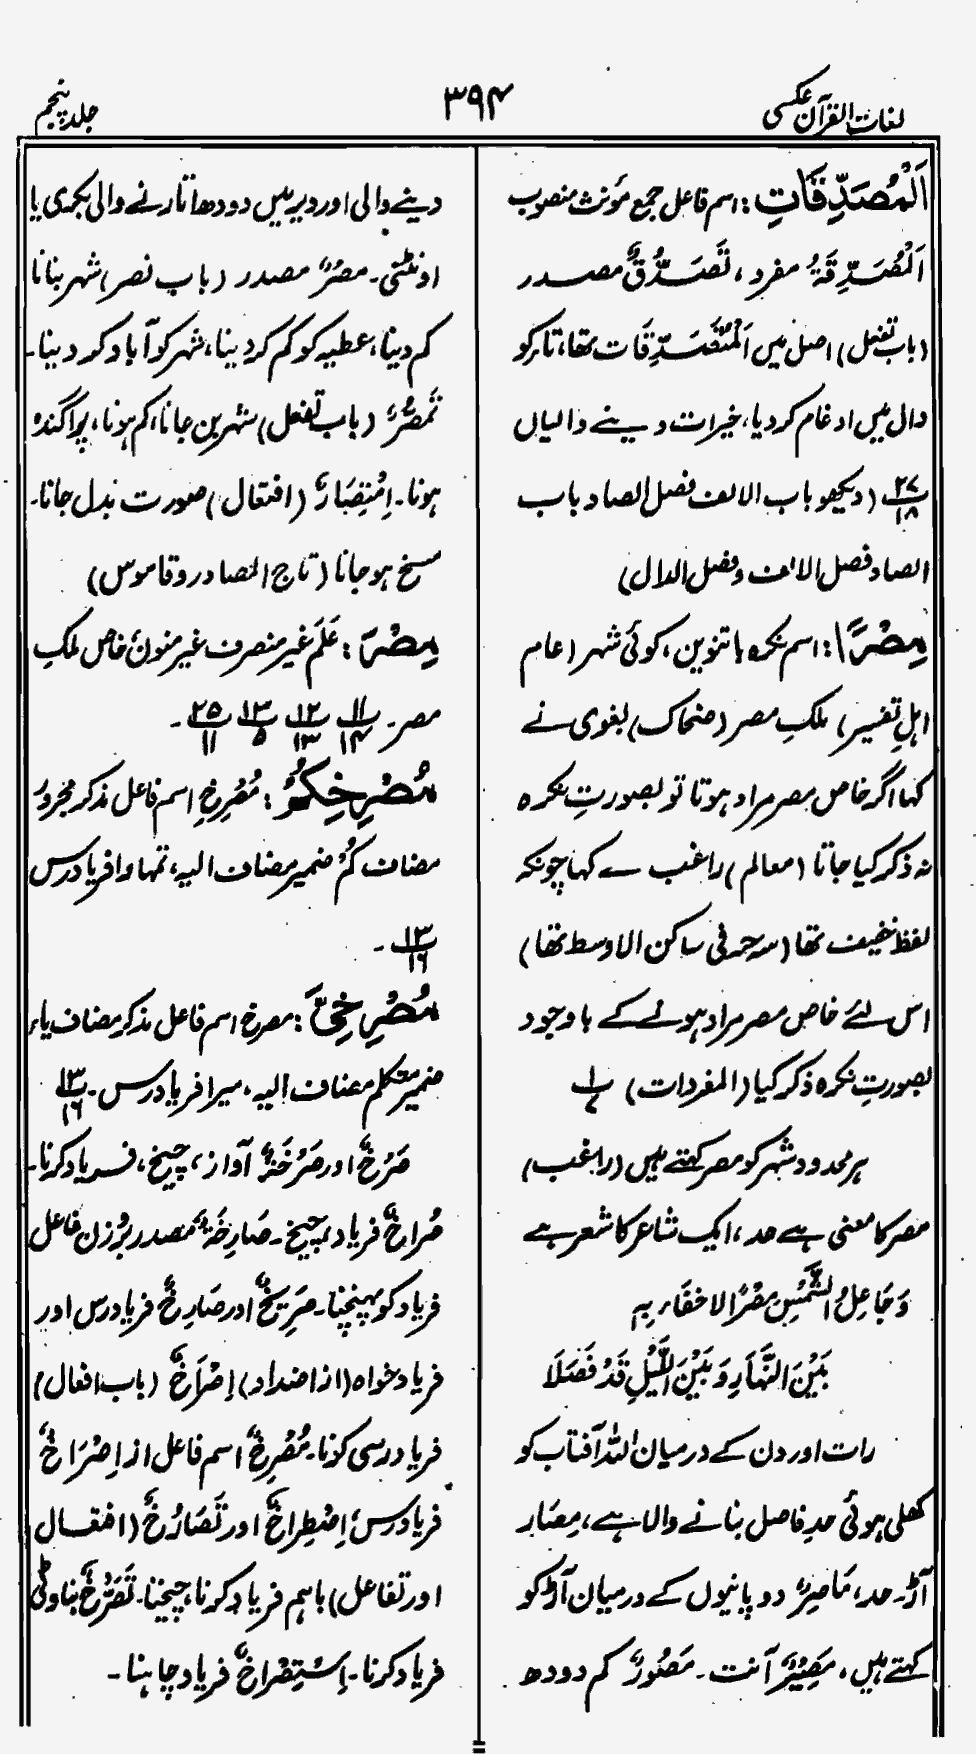 لغات القرآن عکسی
۳۹۴
جلد پنجم
اَلْمُصَدِّقَاتِ: اسم فاعل جمع مؤنث منصوب
اَلْمُصَدِّقَةُ مفرد، تَصَدُّقٌ مصدر
(باب تفعل) اصل میں اَلْمُتَصَدِّقَات تھا، تار کو
دال میں ادغام کر دیا، خیرات دینے والیاں
۲۷/۱۸ (دیکھو باب الالف فصل الصاد باب
الصاد فصل الالف وفصل الدال)
مِصْرًا: اسم نکرہ با تنوین، کوئی شہر (عام
اہلِ تفسیر) ملکِ مصر (ضحاک) بغوی نے
کہا اگر خاص مصر مراد ہوتا تو بصورتِ نکرہ
نہ ذکر کیا جاتا (معالم) راغب نے کہا چونکہ
لفظ خفیف تھا (سہ حرفی ساکن الاوسط تھا)
اس لئے خاص مصر مراد ہونے کے باوجود
بصورتِ نکرہ ذکر کیا (المفردات) ۱/۷
ہر محدود شہر کو مصر کہتے ہیں (راغب)
مصر کا معنی ہے حد، ایک شاعر کا شعر ہے
وَجَاعِلُ الشَّمْسِ مِصْرًا لا خفَاءَ بِہ
بَيْنَ النَّهَارِ وَبَيْنَ اللَّيْلِ قَدْ فَصَلَا
رات اور دن کے درمیان اللہ آفتاب کو
کھلی ہوئی حدِ فاصل بنانے والا ہے، مِصَار
آڑ۔ حد، مَاصِرٌ دو پانیوں کے درمیان آڑ کو
کہتے ہیں، مَصِیْرٌ آنت۔ مَصُوْرٌ کم دودھ
دینے والی اور دیر میں دودھ اتارنے والی بکری یا
اونٹنی۔ مصْرٌ مصدر (باب نصر) شہر بنانا
کم دینا، عطیہ کو کم کر دینا، شہر کو آباد کر دینا۔
تَمَصُّرٌ (باب تفعل) شہر بن جانا، کم ہونا، پراگندہ
ہونا۔ اِمْتِصَارٌ (افتعال) صورت بدل جانا۔
مسخ ہو جانا (تاج المصادر و قاموس)
مِصْرَ: عَلَم غیر منصرف غیر منون خاص ملکِ
مصر۔ ۱۱/۱۴ ۱۲/۱۳ ۱۳/۵ ۲۵/۱۱۔
مُصْرِخِكُمْ: مُصْرِخِ اسم فاعل مذکر مجرور
مضاف کُمْ ضمیر مضاف الیہ، تمہارا فریادرس
۱۳/۱۶۔
مُصْرِخِيَّ: مصرخ اسم فاعل مذکر مضاف یاء
ضمیر متکلم مضاف الیہ، میرا فریادرس۔ ۱۳/۱۶
صَرْخٌ اور صَرْخَةٌ آواز، چیخ، فریاد کرنا۔
صُرَاخٌ فریاد، چیخ۔ صَارِخَةٌ مصدر بروزن فاعل
فریاد کو پہنچنا۔ صَرِیْخٌ اور صَارِخٌ فریادرس اور
فریاد خواہ (از اضداد) اِصْرَاخٌ (باب افعال)
فریاد رسی کرنا۔ مُصْرِخٌ اسم فاعل از اِصْرَاخٌ
فریادرس، اِصْطِرَاخٌ اور تَصَارُخٌ (افتعال
اور تفاعل) باہم فریاد کرنا، چیخنا۔ تَصَرُّخٌ بناوٹی
فریاد کرنا۔ اِسْتِصْرَاخٌ فریاد چاہنا۔